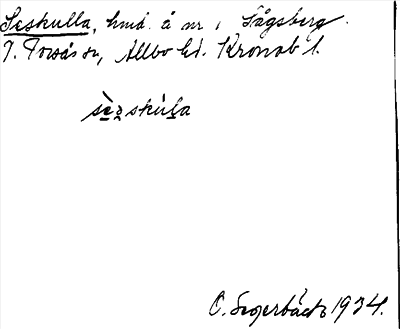 Seskulla, hmd. å nr 1 Tågsberg
T. Torsås sn, Allbo hd. Kronob. l.
sè̱ʐskúḻa
O. Segerbäck 1934.